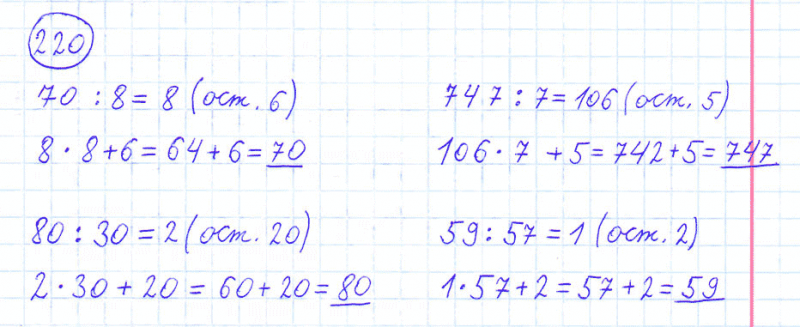 220
70 : 8 = 8 (ост. 6)
8 · 8 + 6 = 64 + 6 = 70
747 : 7 = 106 (ост. 5)
106 · 7 + 5 = 742 + 5 = 747
80 : 30 = 2 (ост. 20)
2 · 30 + 20 = 60 + 20 = 80
59 : 57 = 1 (ост. 2)
1 · 57 + 2 = 57 + 2 = 59